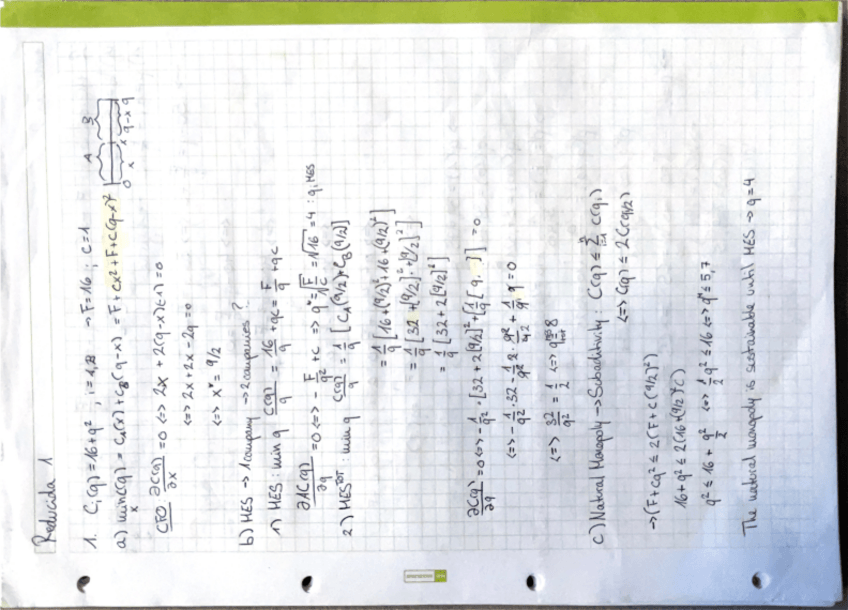 Reducida 1
1. Ci(q) = 16+q² , i=1,2 → F=16 ; c=1
a) min C(q) = CA(x) + CB(q-x) = F + cx² + F + c(q-x)²
x
A B
0 x x q-x q
CFO ∂C(q)/∂x = 0 <=> 2x + 2(q-x)(-1) = 0
<=> 2x + 2x - 2q = 0
<=> x* = q/2
b) MES → 1 company → 2 companies ?
1) MES : min q C(q)/q = 16/q + qc = F/q + qc
∂AC(q)/∂q = 0 <=> - F/q² + c => q* = √F/c = √16 = 4 : qi MES
2) MES TOT : min q C(q)/q = 1/q [CA(q/2) + CB(q/2)]
= 1/q [16 + (q/2)² + 16 + (q/2)²]
= 1/q [32 + (q/2)² + (q/2)²]
= 1/q [32 + 2(q/2)²]
∂C(q)/∂q = 0 <=> - 1/q² · [32 + 2(q/2)²] + [1/q [q ]] = 0
<=> - 1/q² · 32 - 1/q² · q²/2 + 1/q · q = 0
<=> 32/q² = 1/2 <=> q = 8
c) Natural Monopoly → Subaditivity : C(q) ≤ Σ C(qi)
<=> C(q) ≤ 2C(q/2)
→ (F + cq² ≤ 2(F + c(q/2)²)
16 + q² ≤ 2(16 + (q/2)²c)
q² ≤ 16 + q²/2 <=> 1/2 q² ≤ 16 <=> q* ≤ 5,7
The natural monopoly is sustainable until MES → q=4